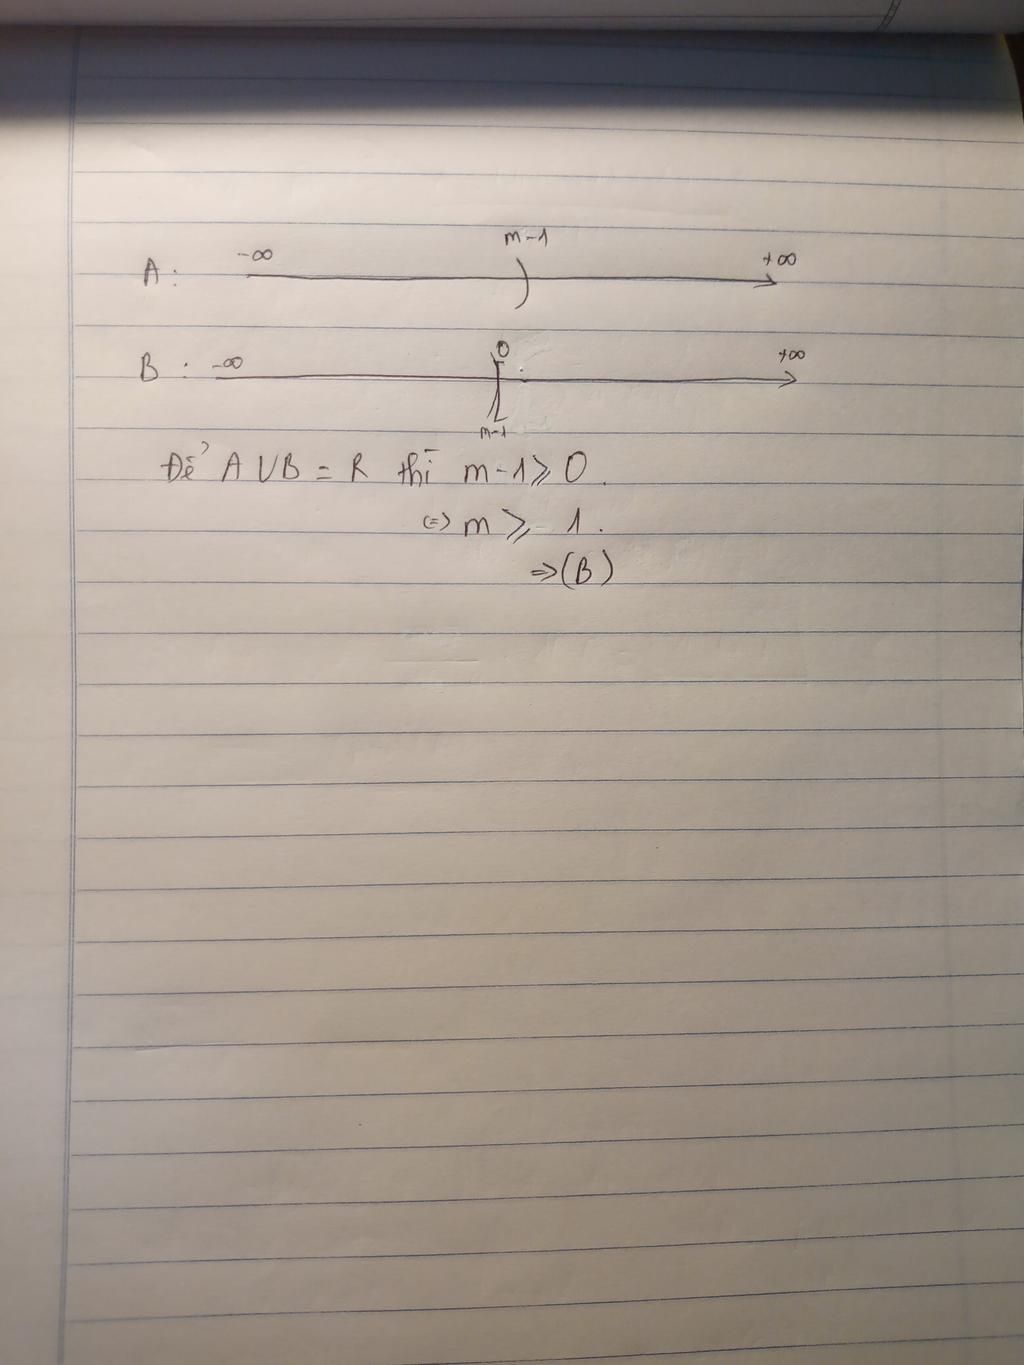 m-1
A: -∞ +∞
0
B: -∞ +∞
m-1
Để A∪B = R thì m-1 ⩾ 0.
<=> m ⩾ 1.
=> (B)